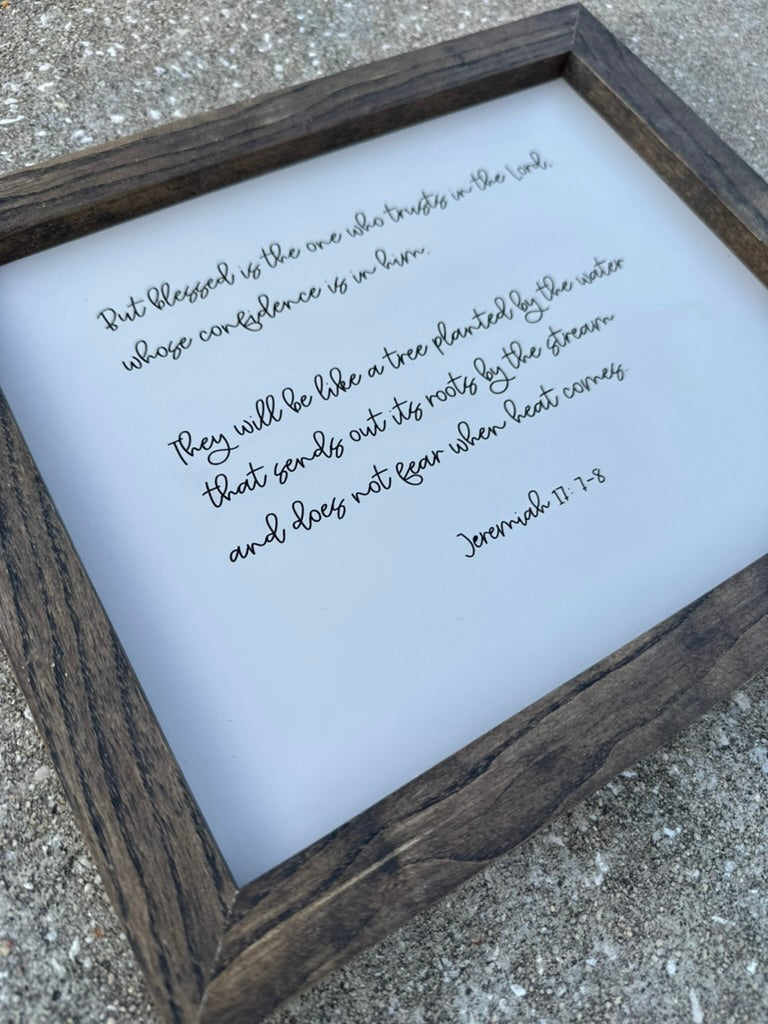 But blessed is the one who trusts in the Lord,
whose confidence is in him.
They will be like a tree planted by the water
that sends out its roots by the stream
and does not fear when heat comes.
Jeremiah 17:7-8